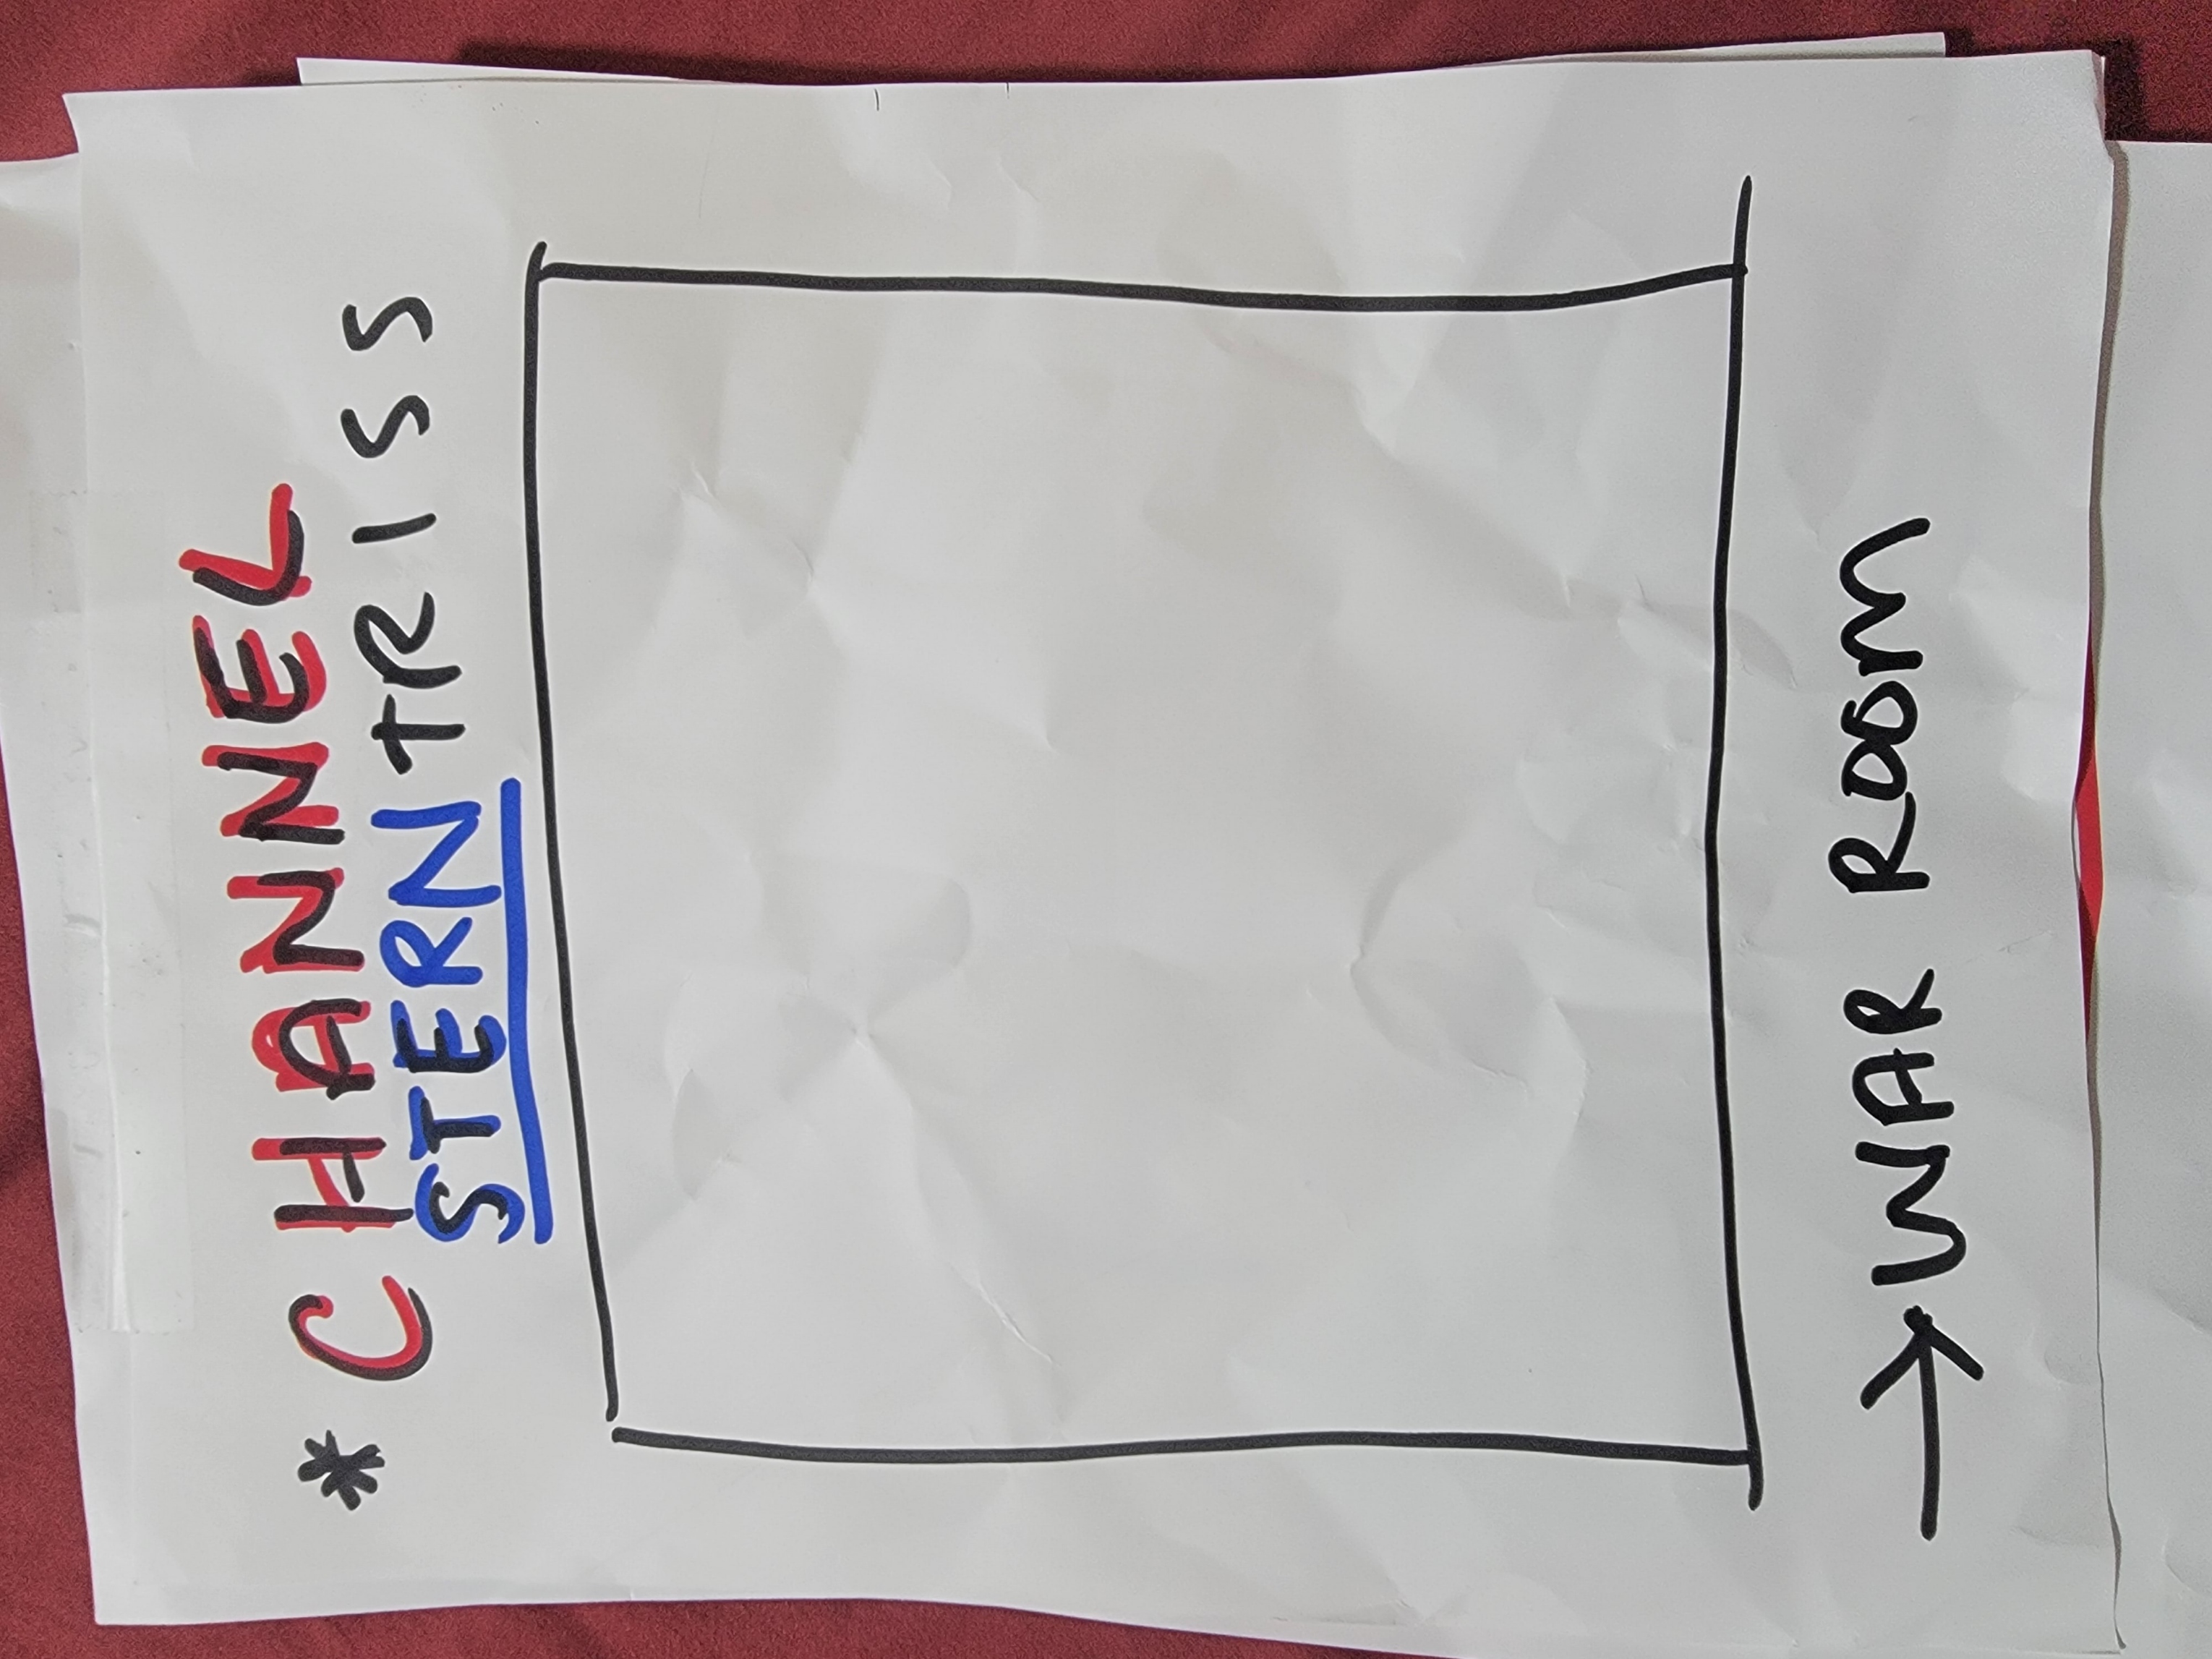 * CHANNEL
STERN TRISS
→ WAR ROOM